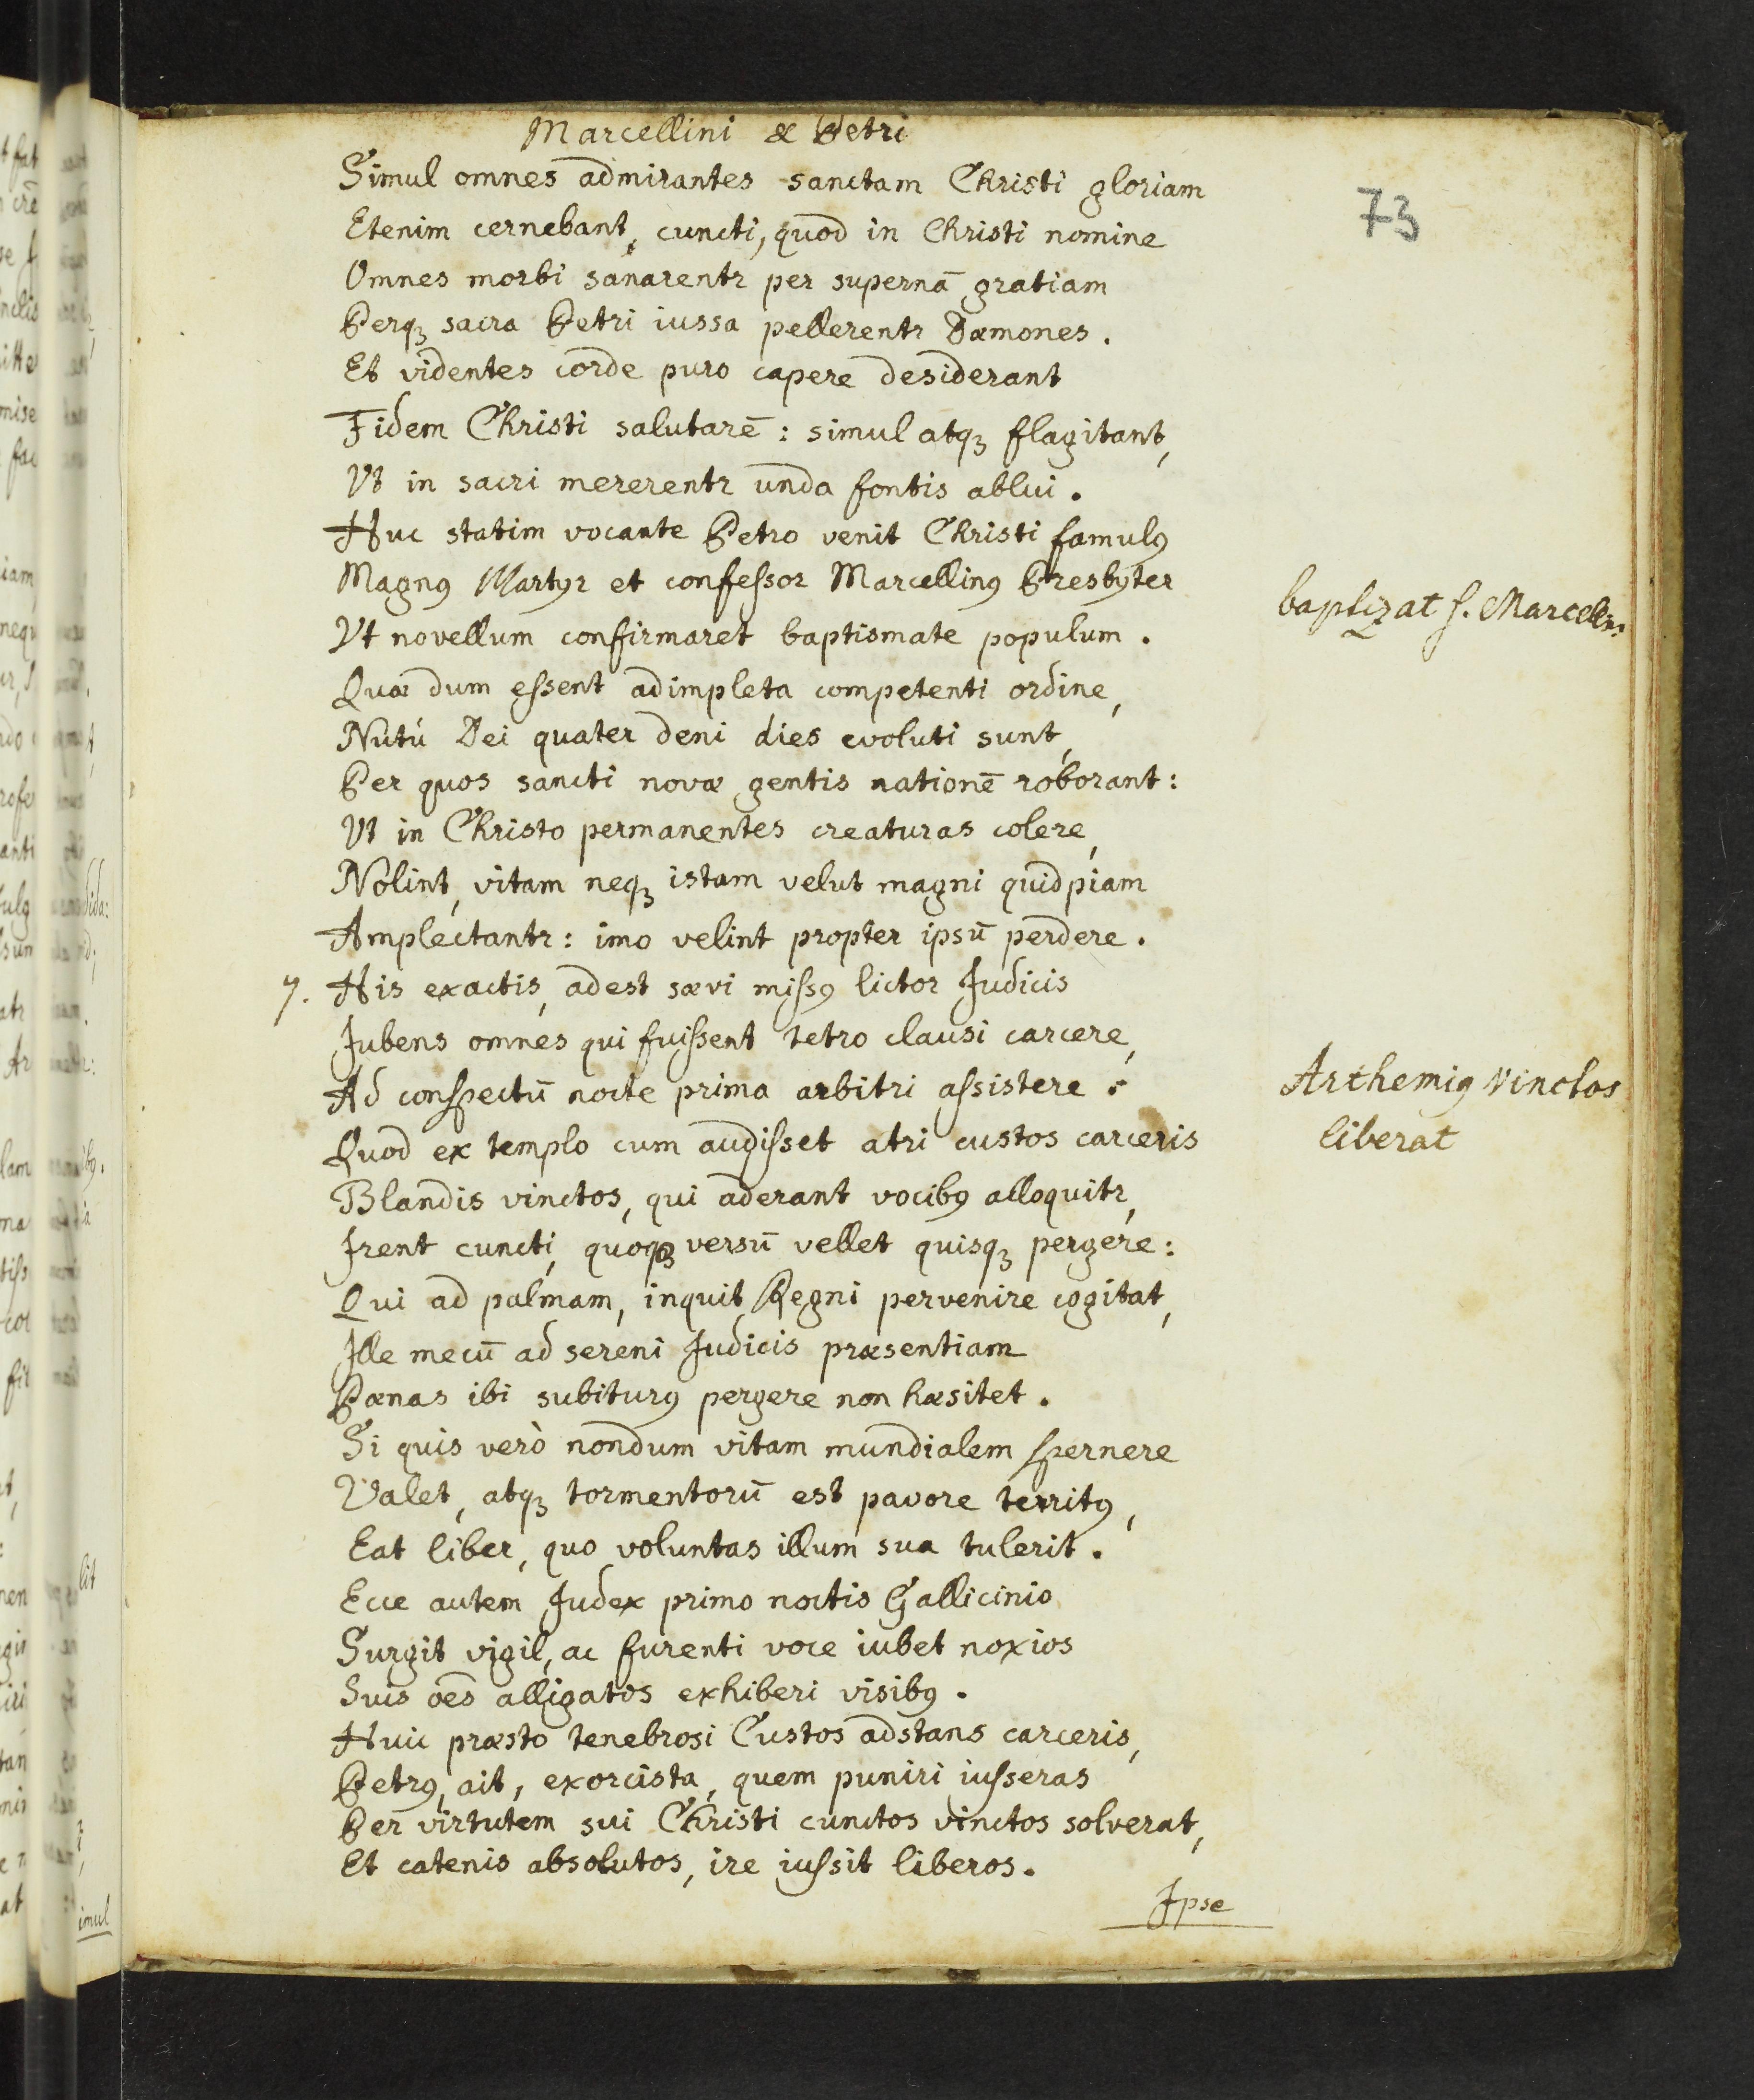 Marcellini & Petri
73
Simul omnes admirantes sanctam Christi gloriam
Etenim cernebant, cuncti, quod in Christi nomine
Omnes morbi sanarentr per supernā gratiam
Perqꝫ sacra Petri iussa pellerentr Dæmones.
Et videntes corde puro capere desiderant
Fidem Christi salutarē: simul atqꝫ flagitant,
Vt in sacri mererentr unda fontis ablui.
Huc statim vocante Petro venit Christi famulꝰ
Magnꝰ Martyr et confeſsor Marcellinꝰ Presbyter
baptizat S. Marcellin:
Vt novellum confirmaret baptismate populum.
Quæ dum eſsent adimpleta competenti ordine,
Nutú Dei quater deni dies evoluti sunt,
Per quos sancti novæ gentis nationē roborant:
Vt in Christo permanentes creaturas colere,
Nolint, vitam neqꝫ istam velut magni quidpiam
Amplectantr: imo velint propter ipsū perdere.
7. His exactis, adest sævi miſsꝰ lictor Judicis
Jubens omnes qui fuiſsent tetro clausi carcere,
Ad conspectū nocte prima arbitri aſsistere.
Arthemiꝰ vinctos
liberat
Quod ex templo cum audiſset atri custos carceris
Blandis vinctos, qui aderant vocibꝰ alloquitr,
Irent cuncti, quoqꝫ versū vellet quisqꝫ pergere:
Qui ad palmam, inquit Regni pervenire cogitat,
Ille mecū ad sereni Judicis præsentiam
Pœnas ibi subiturꝰ pergere non hæsitet.
Si quis verò nondum vitam mundialem spernere
Valet, atqꝫ tormentorū est pavore territꝰ,
Eat liber, quo voluntas illum sua tulerit.
Ecce autem Judex primo noctis Gallicinio
Surgit vigil, ac furenti voce iubet noxios
Suis oēs alligatos exhiberi visibꝰ.
Huic præsto tenebrosi Custos adstans carceris,
Petrꝰ, ait, exorcista, quem puniri iuſseras
Per virtutem sui Christi cunctos vinctos solverat,
Et catenis absolutos, ire iuſsit liberos.
Ipse